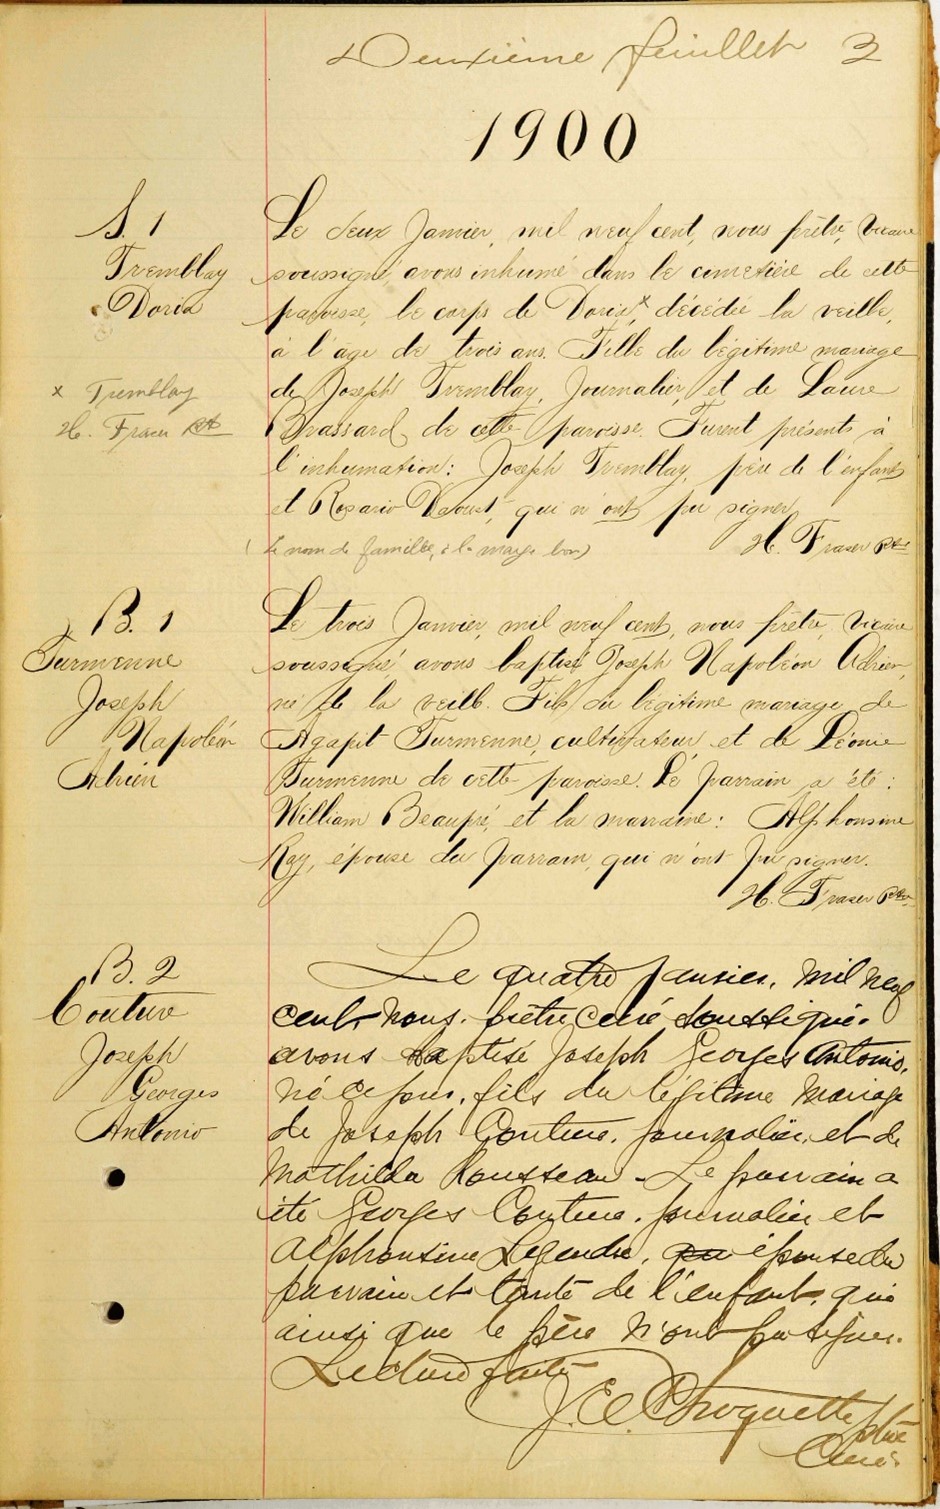 Deuxième feuillet 3
1900
S. 1
Tremblay
Doria
x Tremblay
H. Fraser Ptre
Le deux Janvier, mil neuf cent, nous prêtre, vicaire
soussigné, avons inhumé dans le cimetière de cette
paroisse, le corps de Doria,x décédée la veille,
à l'age de trois ans. Fille du légitime mariage
de Joseph Tremblay, Journalier, et de Laure
Brassard de cette paroisse. Furent présents à
l'inhumation: Joseph Tremblay, père de l'enfant
et Rosario Daoust, qui n'ont pu signer
(Le nom de famille, à la marge bon)
H. Fraser Ptre
B. 1
Turmenne
Joseph
Napoléon
Adrien
Le trois Janvier, mil neuf cent, nous prêtre, vicaire
soussigné, avons baptisé Joseph Napoléon Adrien,
né de la veille. Fils du légitime mariage de
Agapit Turmenne, cultivateur et de Léonie
Turmenne de cette paroisse. Le parrain a été:
William Beaupré, et la marraine: Alphonsine
Roy, épouse du parrain, qui n'ont pu signer.
H. Fraser Ptre
B. 2
Couture
Joseph
Georges
Antonio
Le quatre janvier, mil neuf
cent, nous, prêtre curé soussigné,
avons baptisé Joseph Georges Antonio,
né ce jour, fils du légitime mariage
de Joseph Couture, journalier, et de
Mathilda Rousseau. Le parrain a
été Georges Couture, journalier et
Alphonsine Legendre, épouse du
parrain et tante de l'enfant, qui
ainsi que le père n'ont pu signer.
Lecture faite
J. E. Choquette ptre
Curé